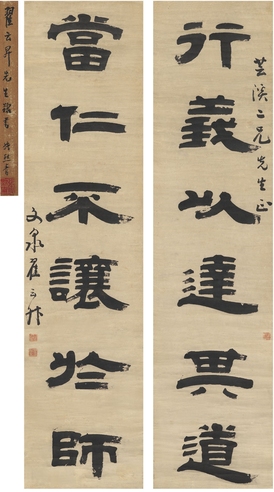 芸溪二兄先生正
行義以達其道
當仁不讓於師
文泉翟云升
翟云升先生隸書